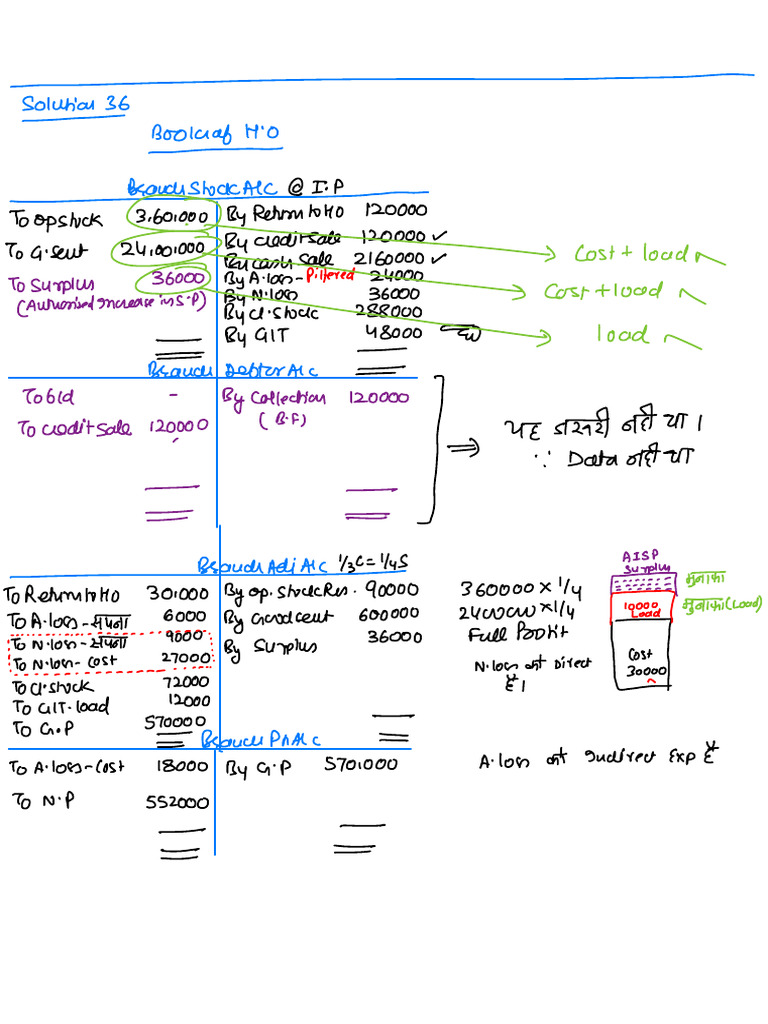 Solution 36
Books of H.O
Branch Stock A/c @ I.P
To op stock 3,60,000 By Return to HO 120000
To G. sent 24,00,000 By credit Sale 120000 ✓
By cash Sale 2160000 ✓
To Surplus 36000 By A.loss - Pilfered 24000
(Authorised Increase in S.P) By N.loss 36000
By cl. stock 288000
By GIT 48000
Cost + load
Cost + load
load
Branch Debtor A/c
To bld - By Collection 120000
To credit Sale 120000 (B.F)
⇒ यह जरूरी नही था।
∵ Data नही था
Branch Adj A/c 1/3C = 1/4S
To Return to HO 30,000 By op. stock Res. 90000 360000 × 1/4
To A.loss - सपना 6000 By Good sent 600000 2400000 × 1/4
To N.loss - सपना 9000 By Surplus 36000 Full Profit
To N.loss - Cost 27000
To cl. stock 72000
To GIT. load 12000
To G.P 570000
N.loss को Direct
है।
AISP
Surplus
मुनाफा
10000
Load
मुनाफा (Load)
Cost
30000
Branch P/L A/c
To A.loss - Cost 18000 By G.P 570,000
To N.P 552000
A.loss को Indirect Exp है